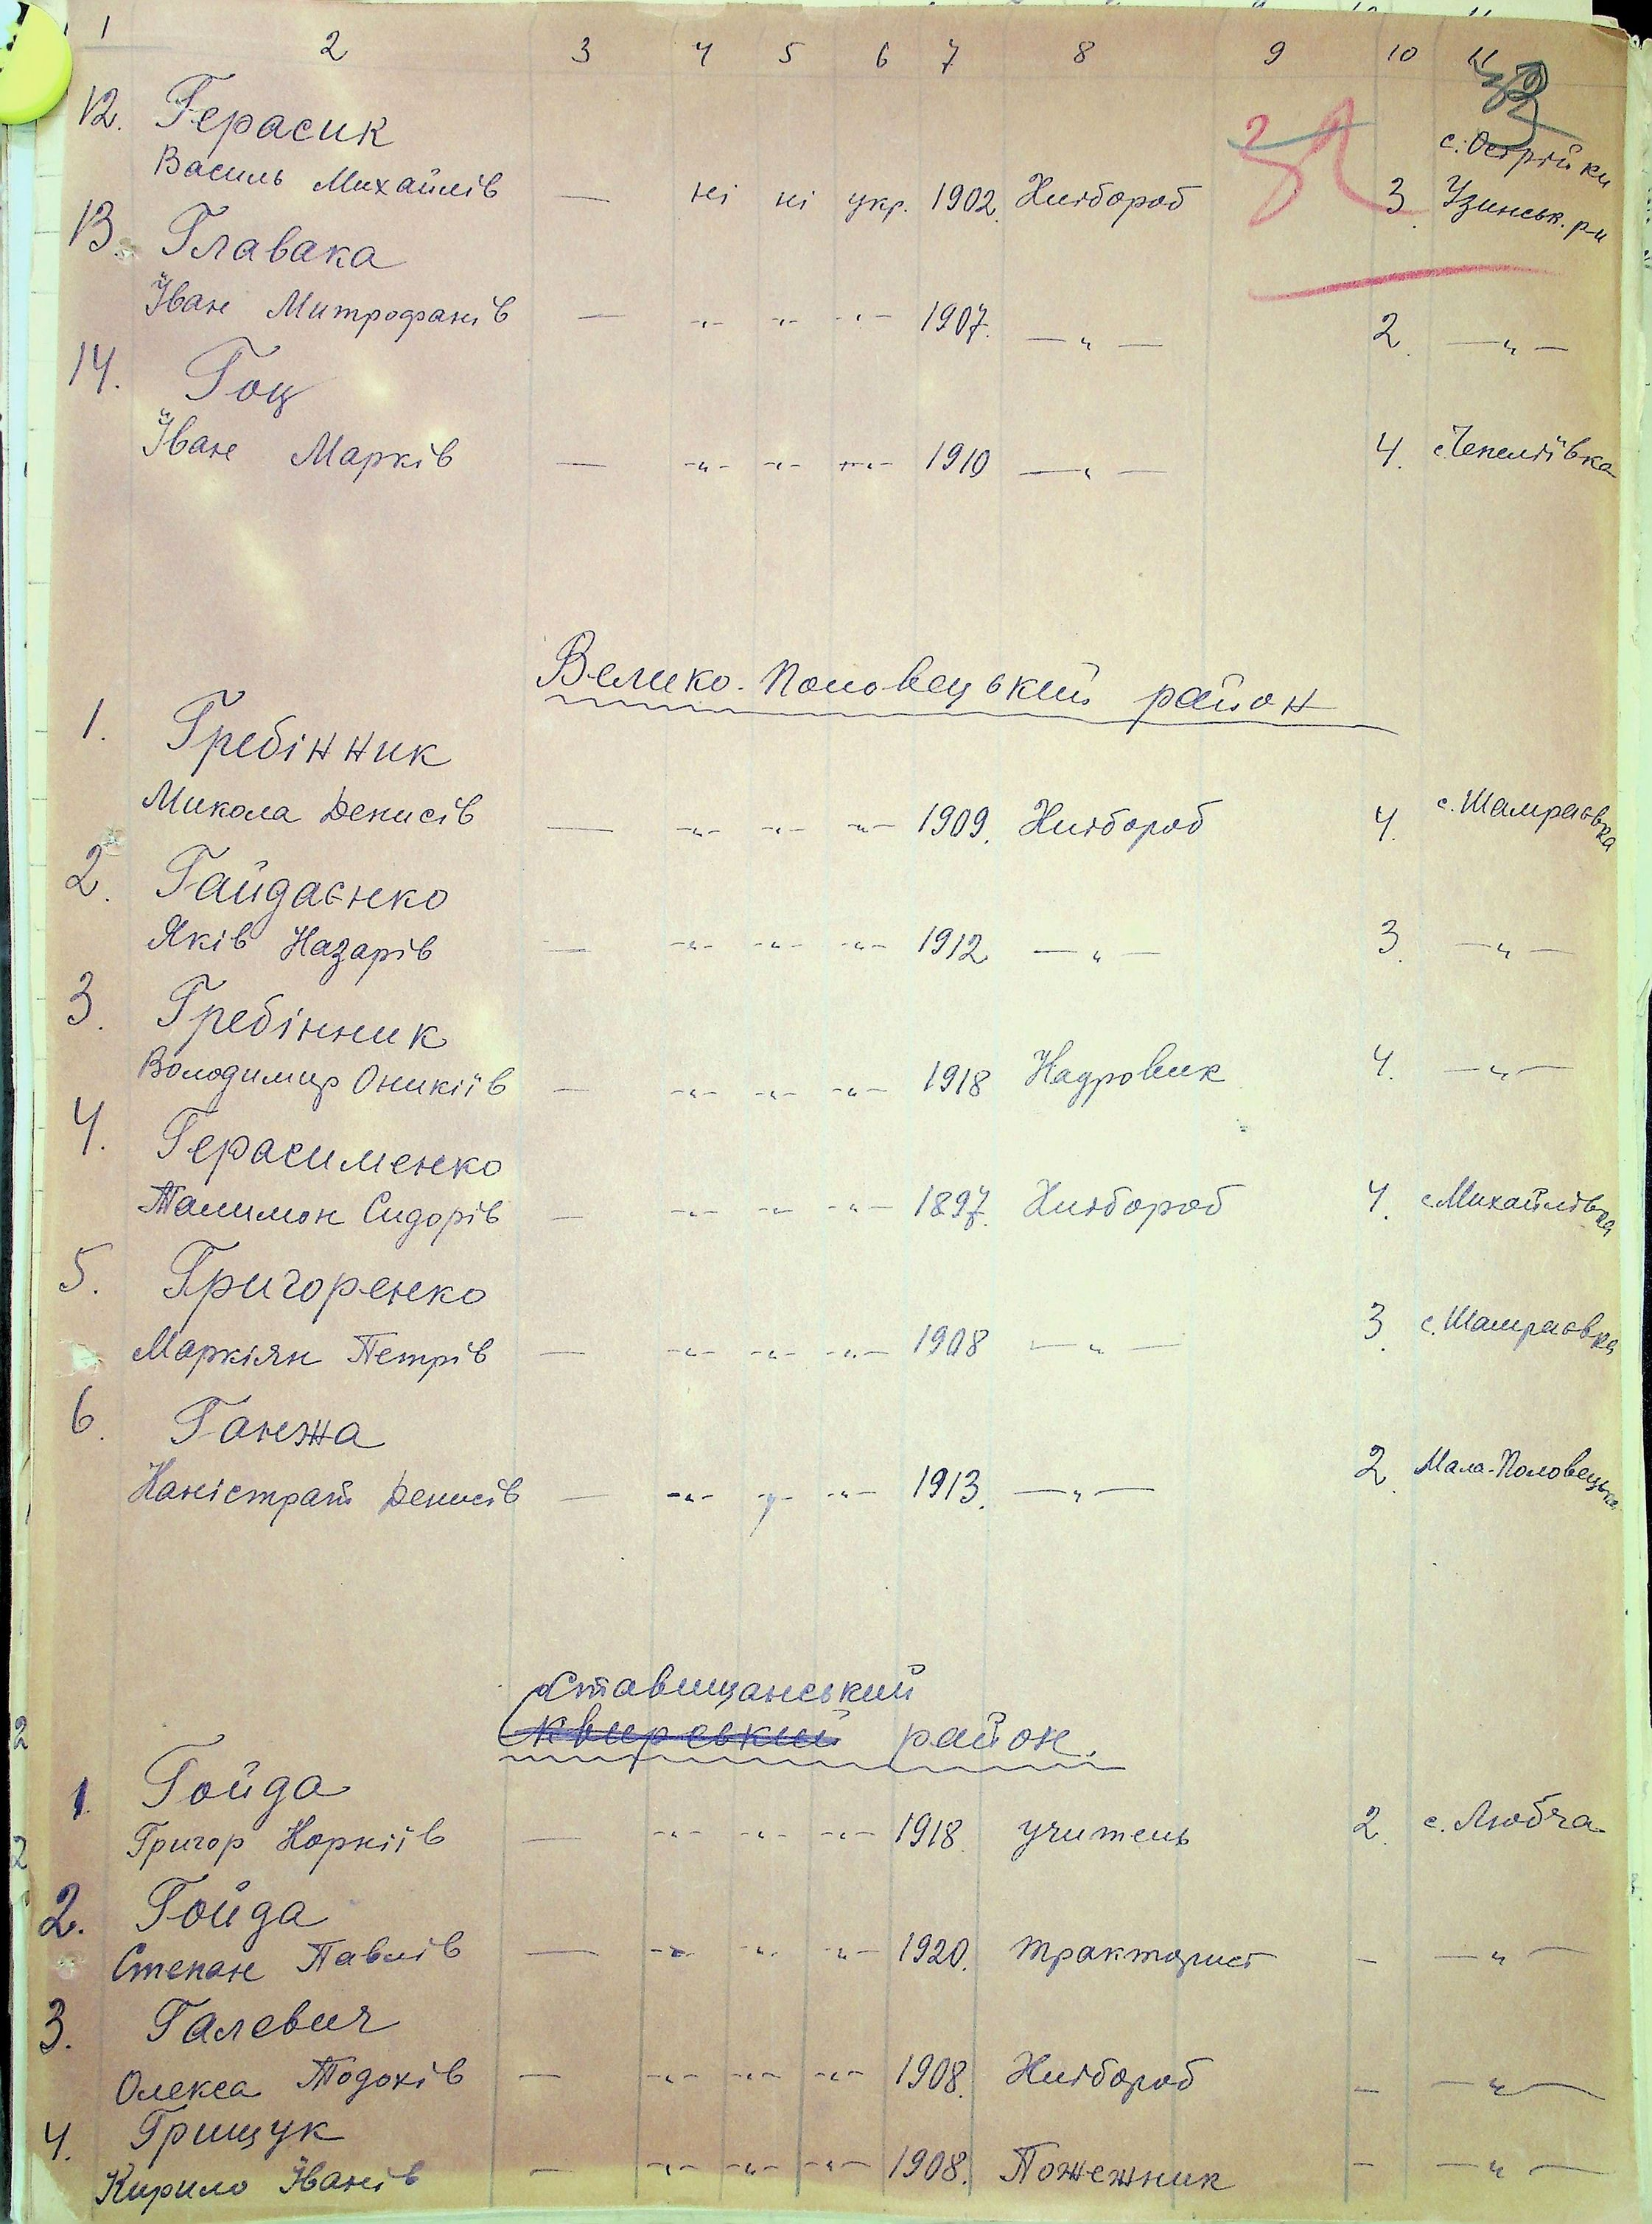 1 2 3 4 5 6 7 8 9 10 11
12. Герасик с. Острійки
Василь Михайлів — ні ні укр. 1902 Хлібороб 3 Узинськ. р-н
13. Главака
Іван Митрофанів — -"- -"- -"- 1907. —"— 2 —"—
14. Гоц
Іван Марків — -"- -"- -"- 1910 —"— 4. с. Чепеліївка
Велико-Половецький район
1. Гребінник
Микола Денисів — -"- -"- -"- 1909. Хлібороб 4. с. Шамраєвка
2. Гайдаєнко
Яків Назарів — -"- -"- -"- 1912 —"— 3. —"—
3. Гребінник
Володимир Оникіїв — -"- -"- -"- 1918 4. —"—
4. Герасименко
Талимон Сидорів — -"- -"- -"- 1897. Хлібороб 4. с. Михайлівка
5. Григоренко
Маркіян Петрів — -"- -"- -"- 1908 —"— 3. с. Шамраєвка
6. Ганжа
Каністрат Денисів — -"- -"- -"- 1913. —"— 2. Мала-Половецьке
Ставищанський
Сквирський район.
1. Гойда
Григор Корніїв — -"- -"- -"- 1918 учитель 2. с. Любча
2. Гойда
Степан Павлів — -"- -"- -"- 1920. тракторист - —"—
3. Галевич
Олекса Тодохів — -"- -"- -"- 1908. Хлібороб - —"—
4. Грищук
Кирило Іванів — -"- -"- -"- 1908. Пожежник - —"—